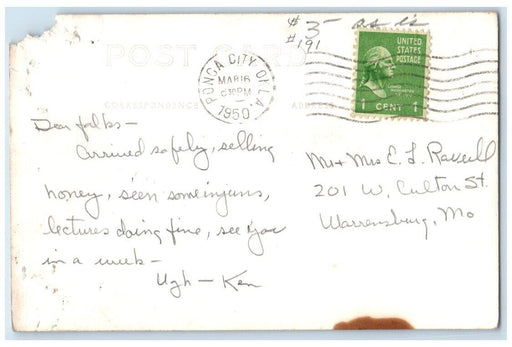 $3- as is
#191
POST CARD
UNITED
STATES
POSTAGE
1 CENT 1
PONCA CITY OKLA
MAR 16
PM
1950
CORRESPONDENCE
ADDRESS
Dear folks—
Arrived safely, selling
honey, seen some injuns,
lectures doing fine, see you
in a week—
Ugh— Ken
Mr + Mrs E. L.
201 W. Culton St.
Warrensburg, Mo